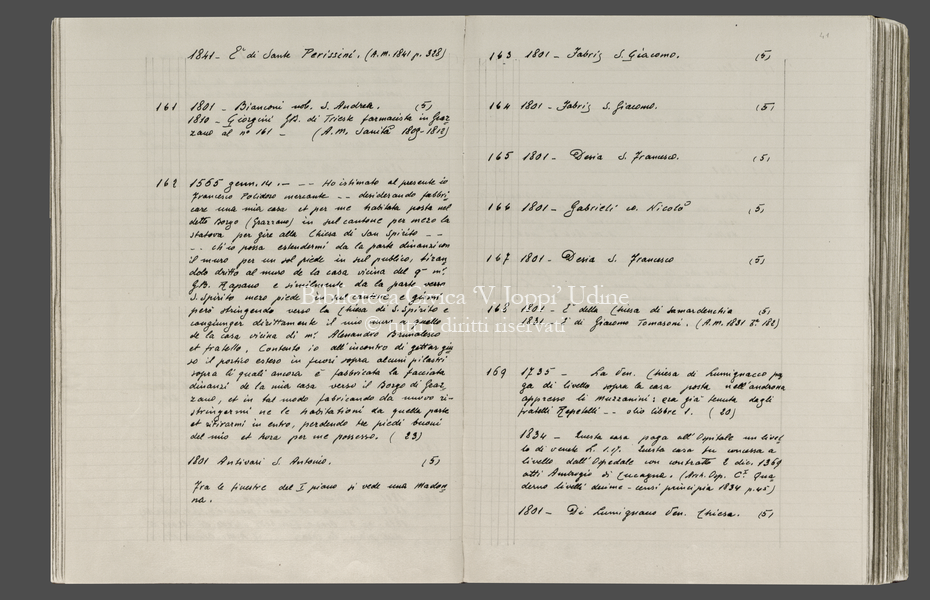 1841 - E' di Sante Perissini. (A.M. 1841 p. 328)
161 1801 - Bianconi nob. S. Andrea. (5)
1810 - Giorgini G.B. di Trieste farmacista in Graz
zano al n° 161 - (A.M. Sanità 1809-1812)
162 1565 genn. 14. - -- Ho istimato al presente io
Francesco Polidoro mercante -- desiderando fabbri
care una mia casa et per me habitata posta nel
detto Borgo (Grazzano) in sul cantone per mezo la
statova per gire alla Chiesa di San Spirito --
-- ch'io possa estendermi da la parte dinanzi con
il muro per un sol piede in sul publico, tiran
dolo dritto al muro de la casa vicina del q.m m.
G.B. Rapano e similmente da la parte verso
S. Spirito mezo piede
però stringendo verso la Chiesa di S. Spirito e
congiunger dirittamente il mio muro a quello
de la casa vicina di m. Alexandro Brunalesco
et fratello. Contento io all'incontro di gettar giu
so il portico esteso in fuori sopra alcuni pilastri
sopra li quali ancora è fabbricata la facciata
dinanzi de la mia casa verso il Borgo di Graz
zano, et in tal modo fabricando da nuovo ri-
stringermi ne le habitationi da quella parte
et ritirarmi in entro, perdendo tre piedi buoni
del mio et hora per me possesso. (23)
1801 Antivari S. Antonio. (5)
Fra le finestre del I piano si vede una Madon
na.
163 1801 - Fabriz S. Giacomo. (5)
164 1801 - Fabriz S. Giacomo. (5)
165 1801 - Desia S. Francesco. (5)
166 1801 - Gabrieli co. Nicolò (5)
167 1801 - Desia S. Francesco (5)
168 1801 - E' della Chiesa di Samardenchia (5)
1831 - E' di Giacomo Tomasoni. (A.M. 1831 182)
169 1735 - La Ven. Chiesa di Lumignacco pa
ga di livello sopra la casa posta nell'androna
appresso li Mazzanini: era già tenuta dagli
fratelli Repetelli -- olio libbre 1. (20)
1834 - Questa casa paga all'Ospitale un livel
lo di venete L. 1.17. Questa casa fu concessa a
livello dall'Ospedale con contratto 2 dic. 1369
atti Ambrogio di Cucagna. (Arch. Osp. Qua
derno livelli decime - censi principia 1834 p. 45)
1801 - Di Lumignano Ven. Chiesa. (5)
Biblioteca Civica 'V. Joppi' Udine
© tutti i diritti riservati